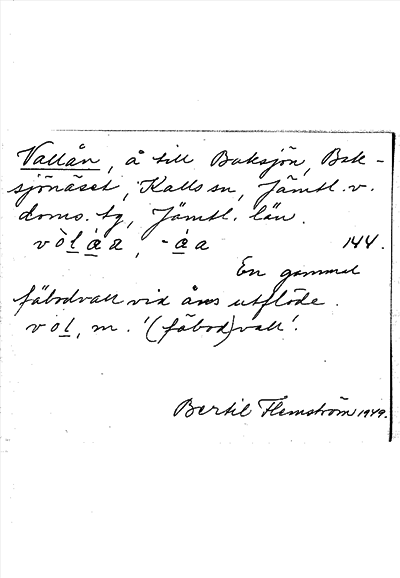 Vallån, å till Baksjön, Bak-
sjönäset, Kalls sn, Jämtl. v.
doms. tg, Jämtl. län.
vòl̲á̲a, -á̲a 144.
En gammal
fäbodvall vid åns utflöde.
vol̲, m. '(fäbod)vall'.
Bertil Flemström 1949.